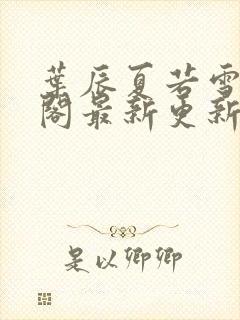 葉辰夏若雪
閣最新更新
是以卿卿